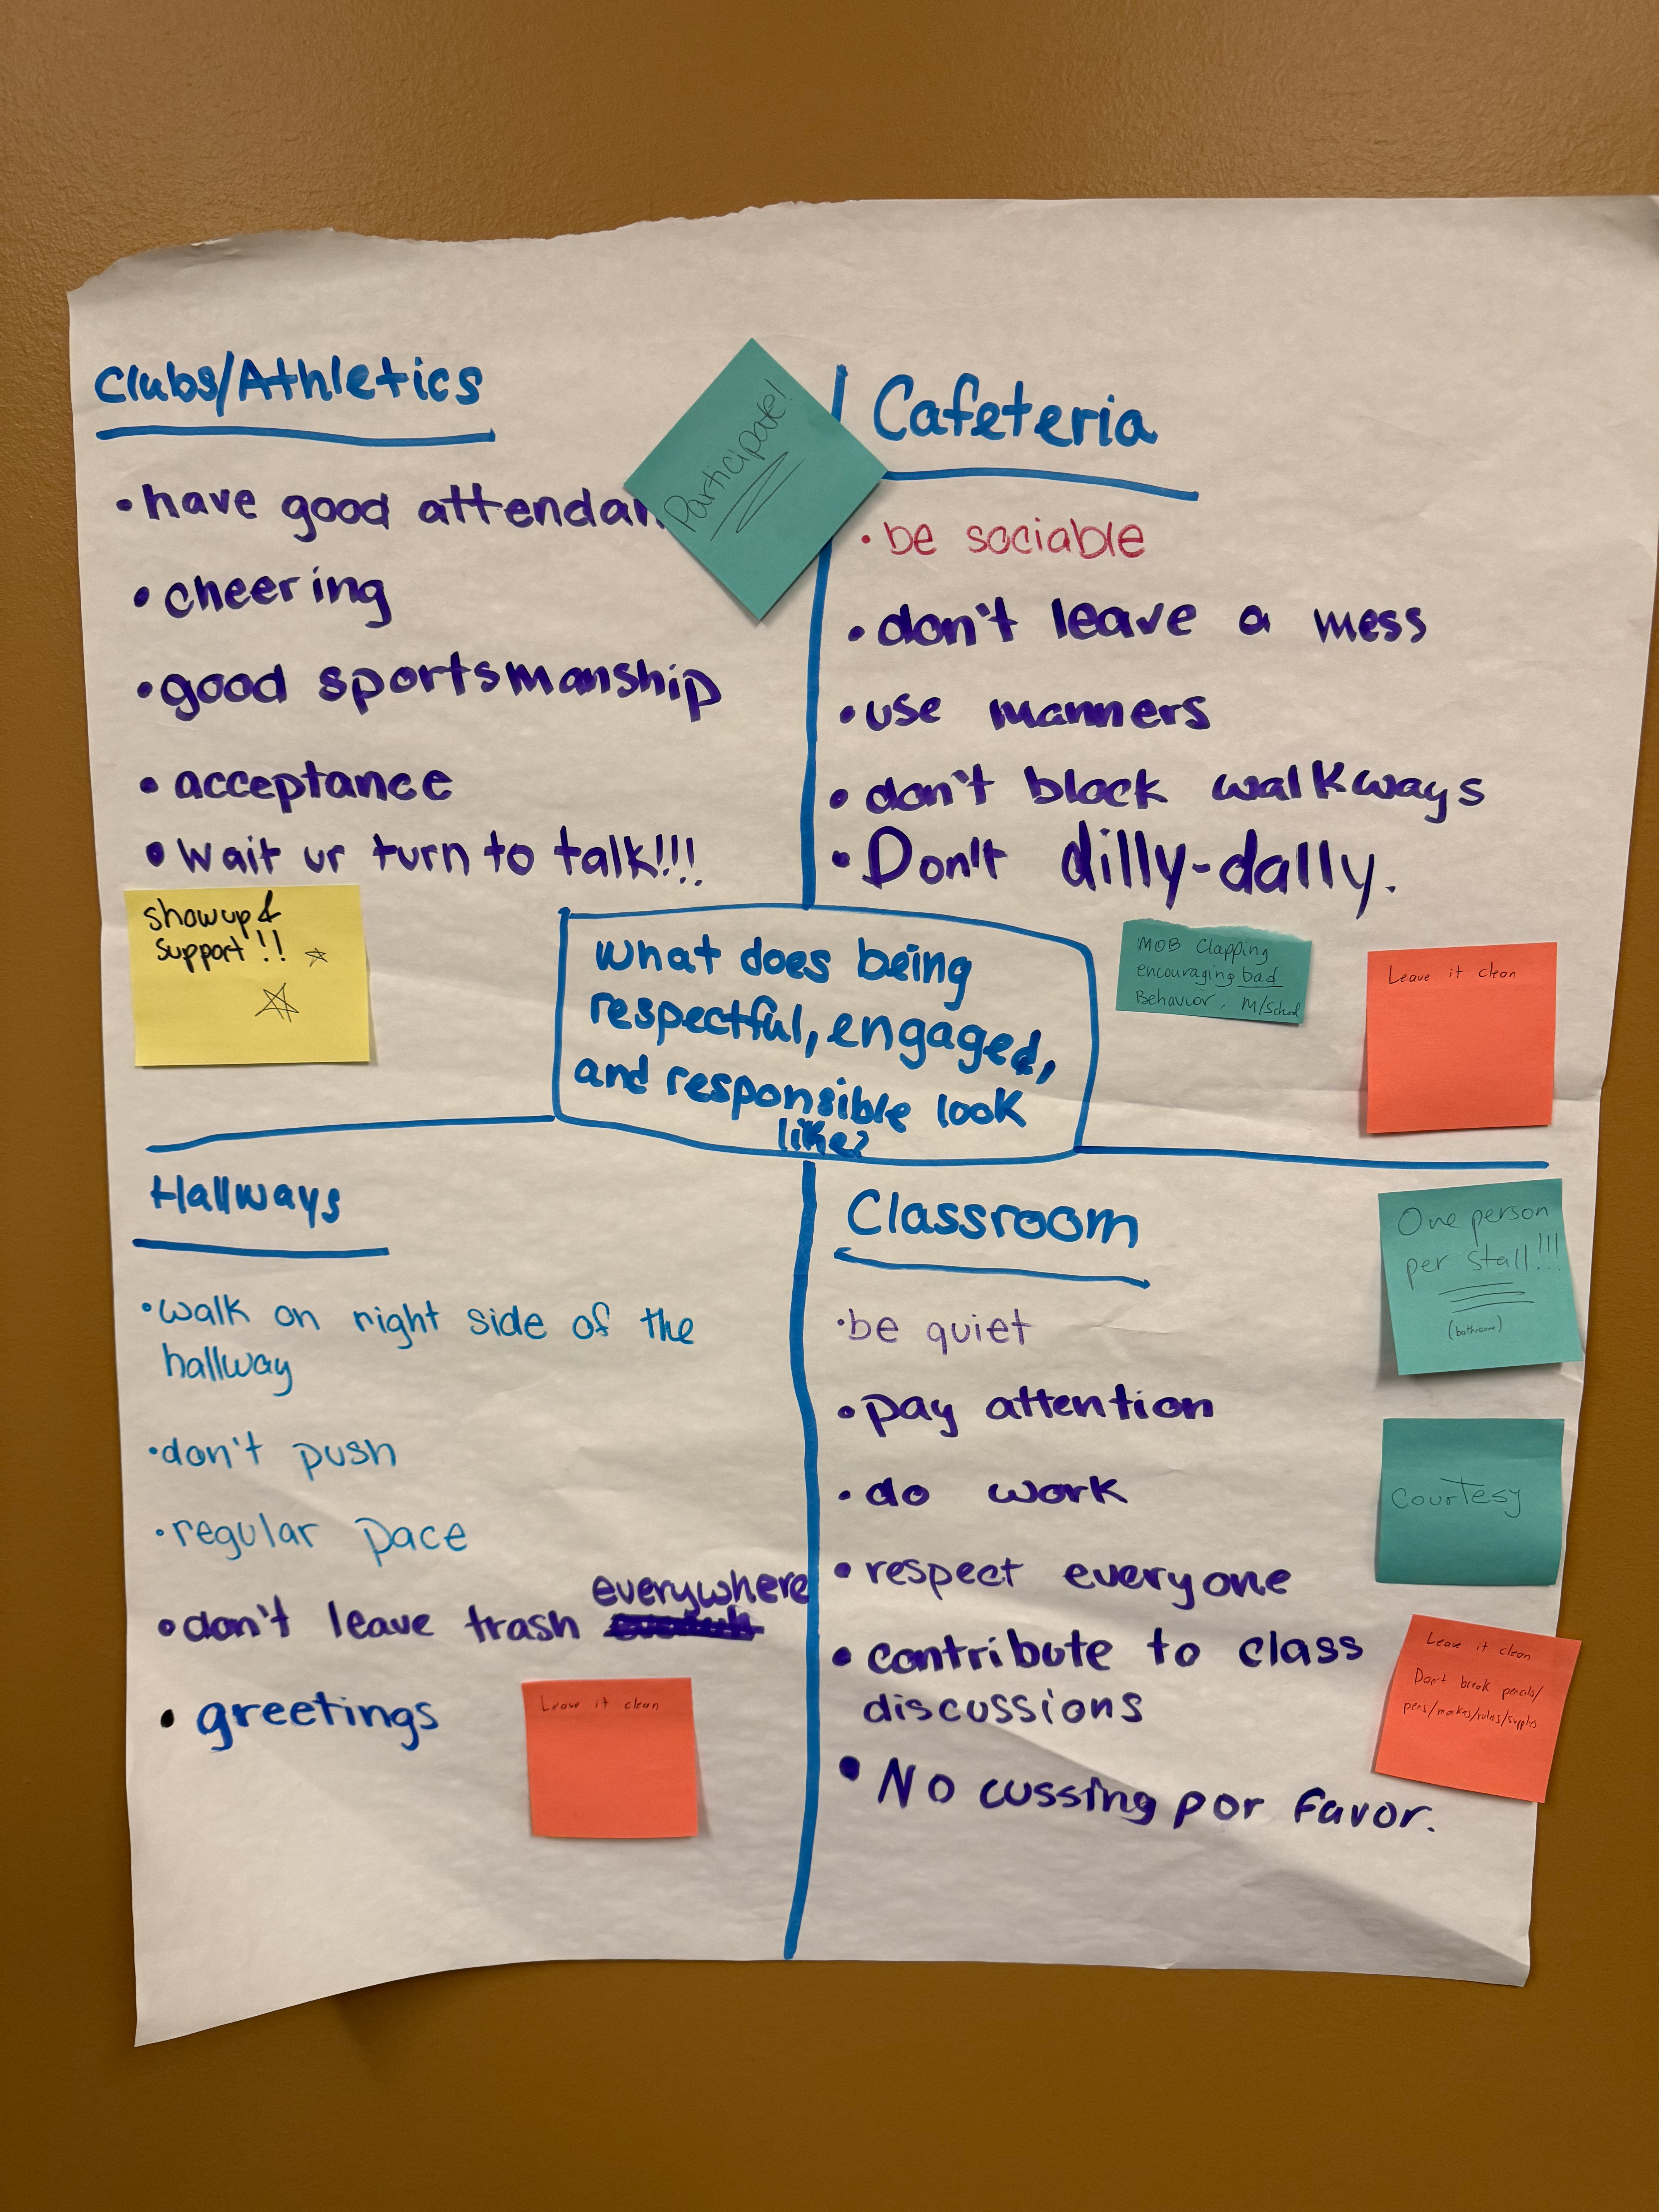 Clubs/Athletics
• have good attendan
• cheering
• good sportsmanship
• acceptance
• Wait ur turn to talk!!!
Show up &
support!!
Participate!
Cafeteria
• be sociable
• don't leave a mess
• use manners
• don't block walkways
• Don't dilly-dally.
MOB Clapping
encouraging bad
Behavior, M/School
Leave it clean
What does being
respectful, engaged,
and responsible look
like?
Hallways
• walk on right side of the
hallway
• don't push
• regular pace
everywhere
• don't leave trash
• greetings
Leave it clean
Classroom
• be quiet
• pay attention
• do work
• respect everyone
• contribute to class
discussions
• No cussing por favor.
One person
per stall!!!
(bathroom)
Courtesy
Leave it clean
Don't break pencils/
pens/markers/rulers/supplies